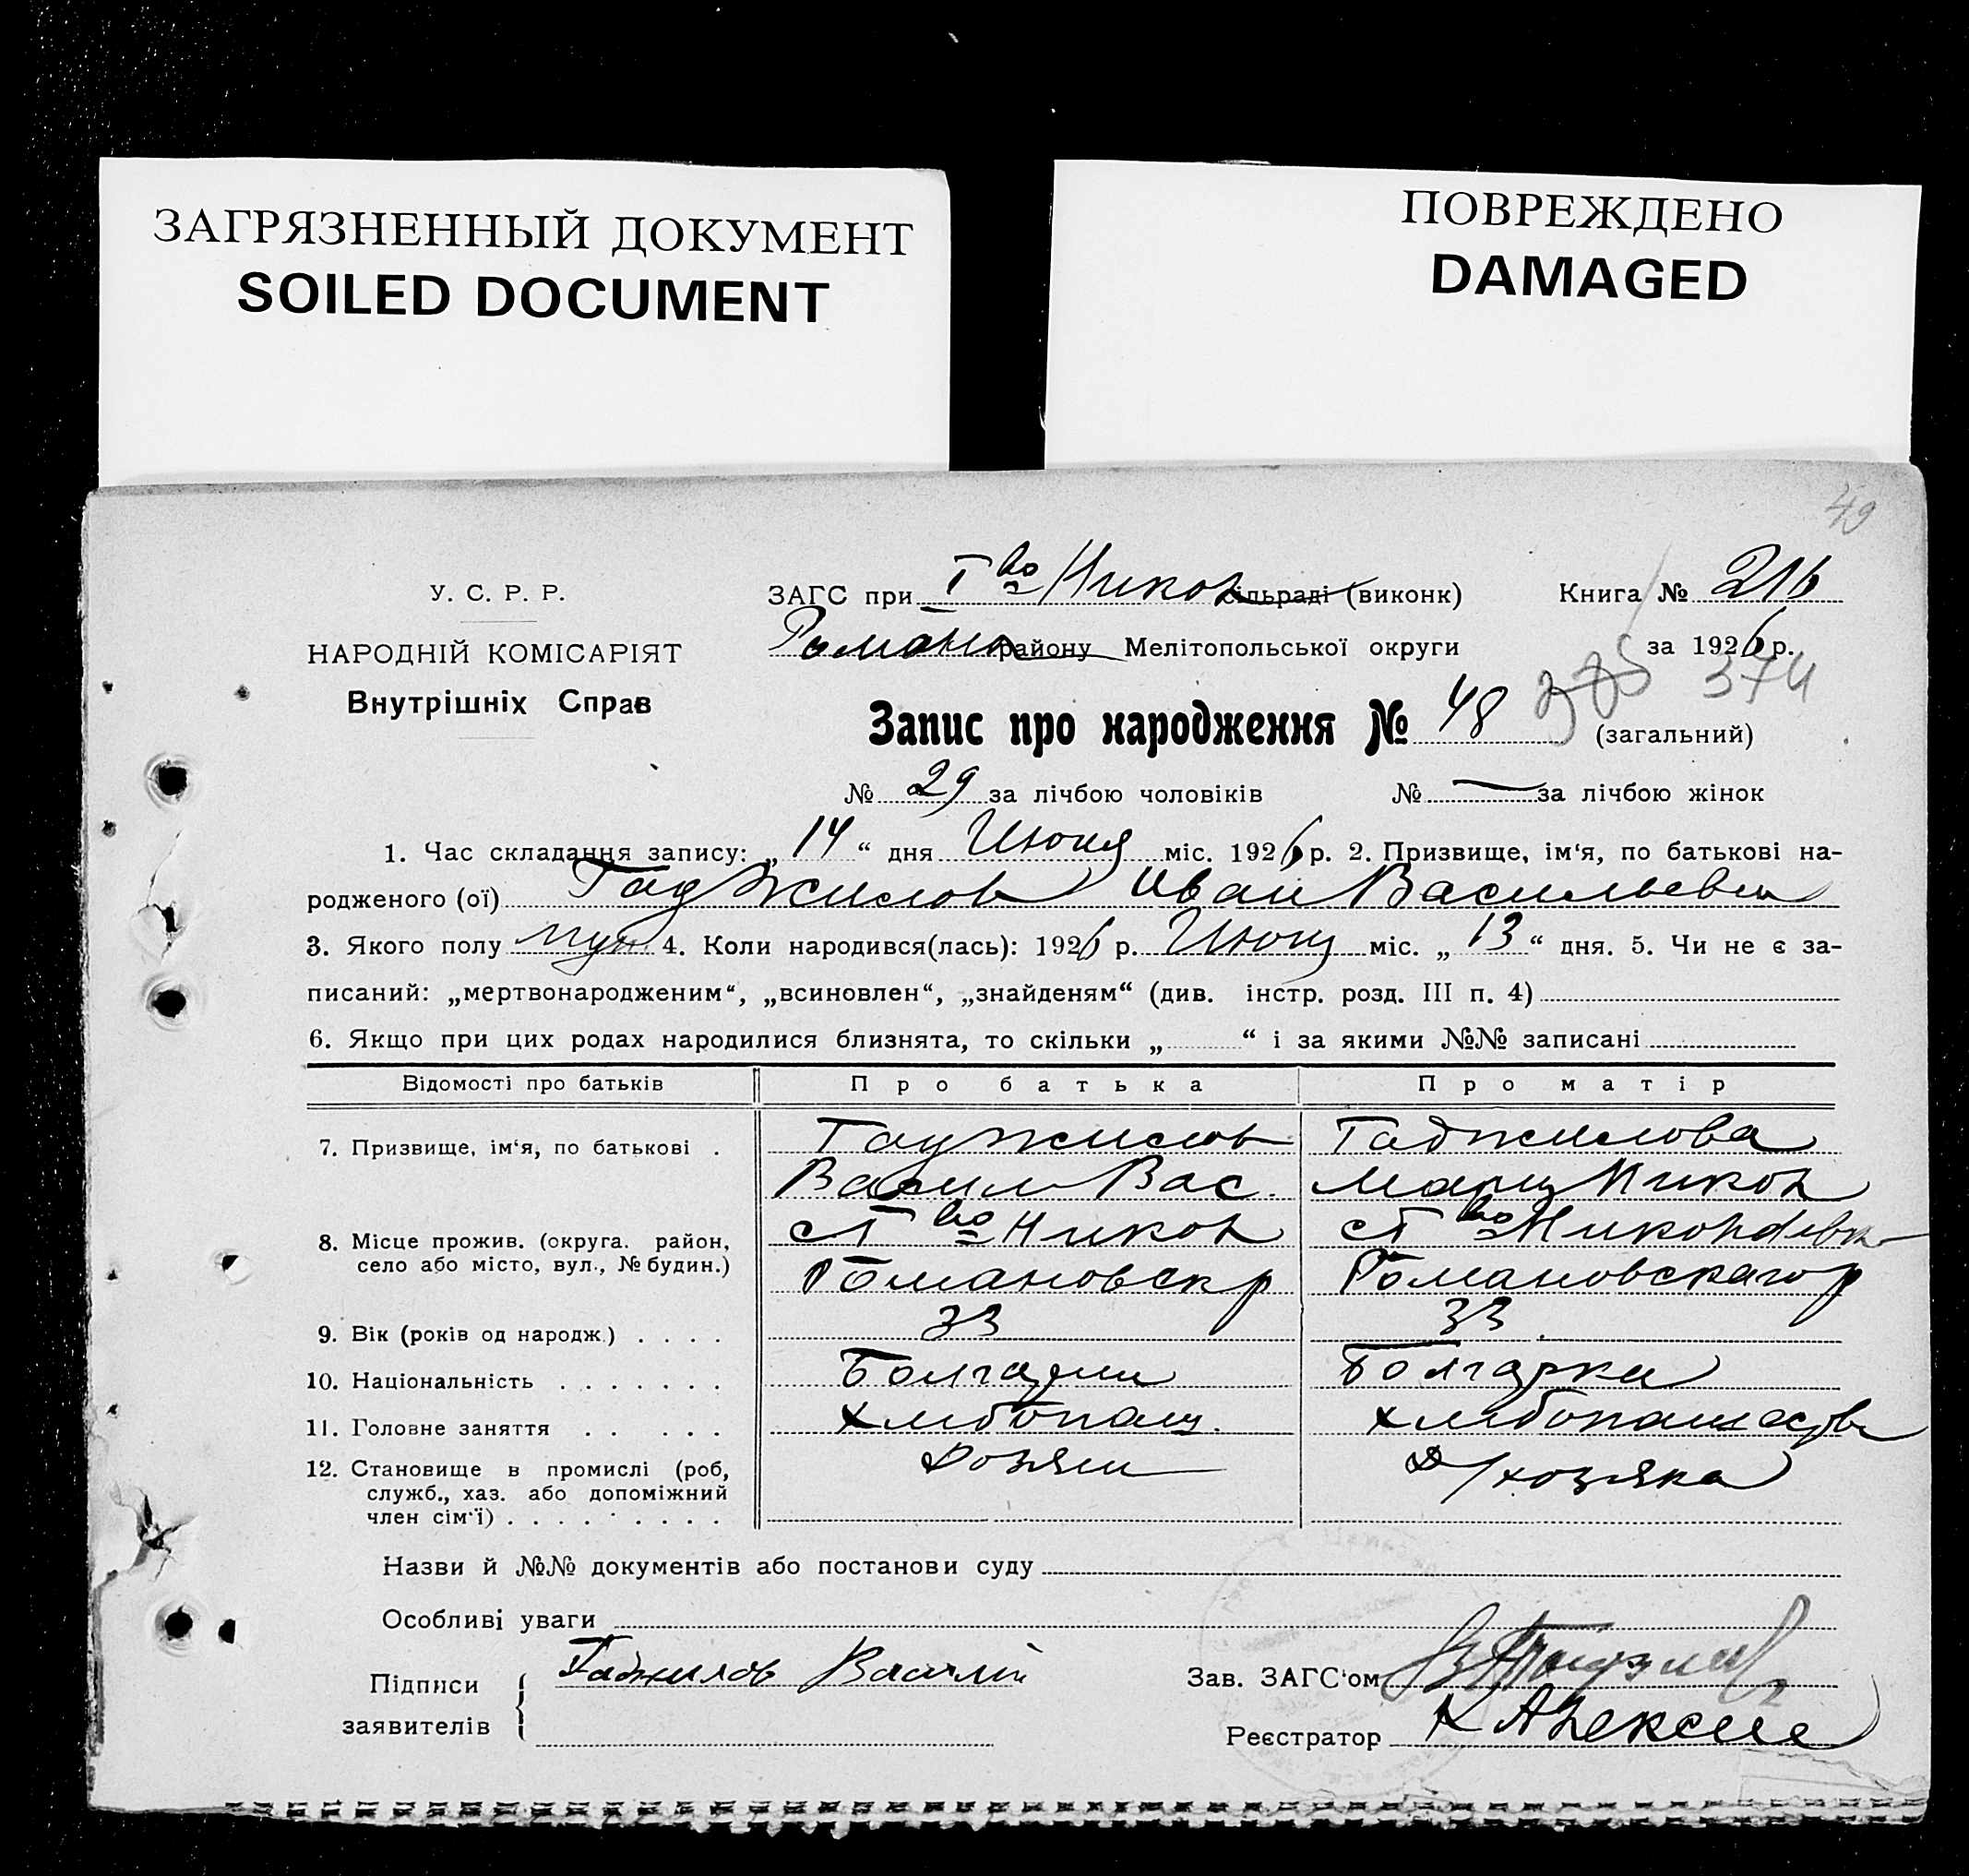 ЗАГРЯЗНЕННЫЙ ДОКУМЕНТ
SOILED DOCUMENT
ПОВРЕЖДЕНО
DAMAGED
49
У. С. Р. Р.
НАРОДНІЙ КОМІСАРІЯТ
Внутрішніх Справ
ЗАГС при Т во Никон сільраді (виконк)
Роман району Мелітопольської округи
Книга № 216
за 1926 р.
374
Запис про народження № 48 (загальний)
№ 29 за лічбою чоловіків № — за лічбою жінок
1. Час складання запису: „ 14 “ дня Июня міс. 1926 р. 2. Призвище, ім‘я, по батькові на-
родженого (ої) Гаджилов Иван Васильевич
3. Якого полу муж 4. Коли народився(лась): 1926 р. Июня міс. „ 13 “ дня. 5. Чи не є за-
писаний: „мертвонародженим“, „всиновлен“, „знайденям“ (див. інстр. розд. III п. 4)
6. Якщо при цих родах народилися близнята, то скільки „ “ і за якими №№ записані
Відомості про батьків Про батька Про матір
7. Призвище, ім‘я, по батькові . Гаджилов Гаджилова
Васил Вас. Мария Никон
8. Місце прожив. (округа. район, ст во Никон ст во
село або місто, вул., № будин.) Романовск р Романовскаго р
9. Вік (років од народж.) . . . . 33 33
10. Національність . . . . . . . Болгарин Болгарка
11. Головне заняття . . . . . Хлибопаш. хлибопашество
12. Становище в промислі (роб, Хозяин Д/хозяка
служб., хаз. або допоміжний
член сім‘ї) . . . . . . . . .
Назви й №№ документів або постанови суду
Особливі уваги
Підписи
заявителів
Гаджилов Василій
Зав. ЗАГС‘ом
Реєстратор К Алексее